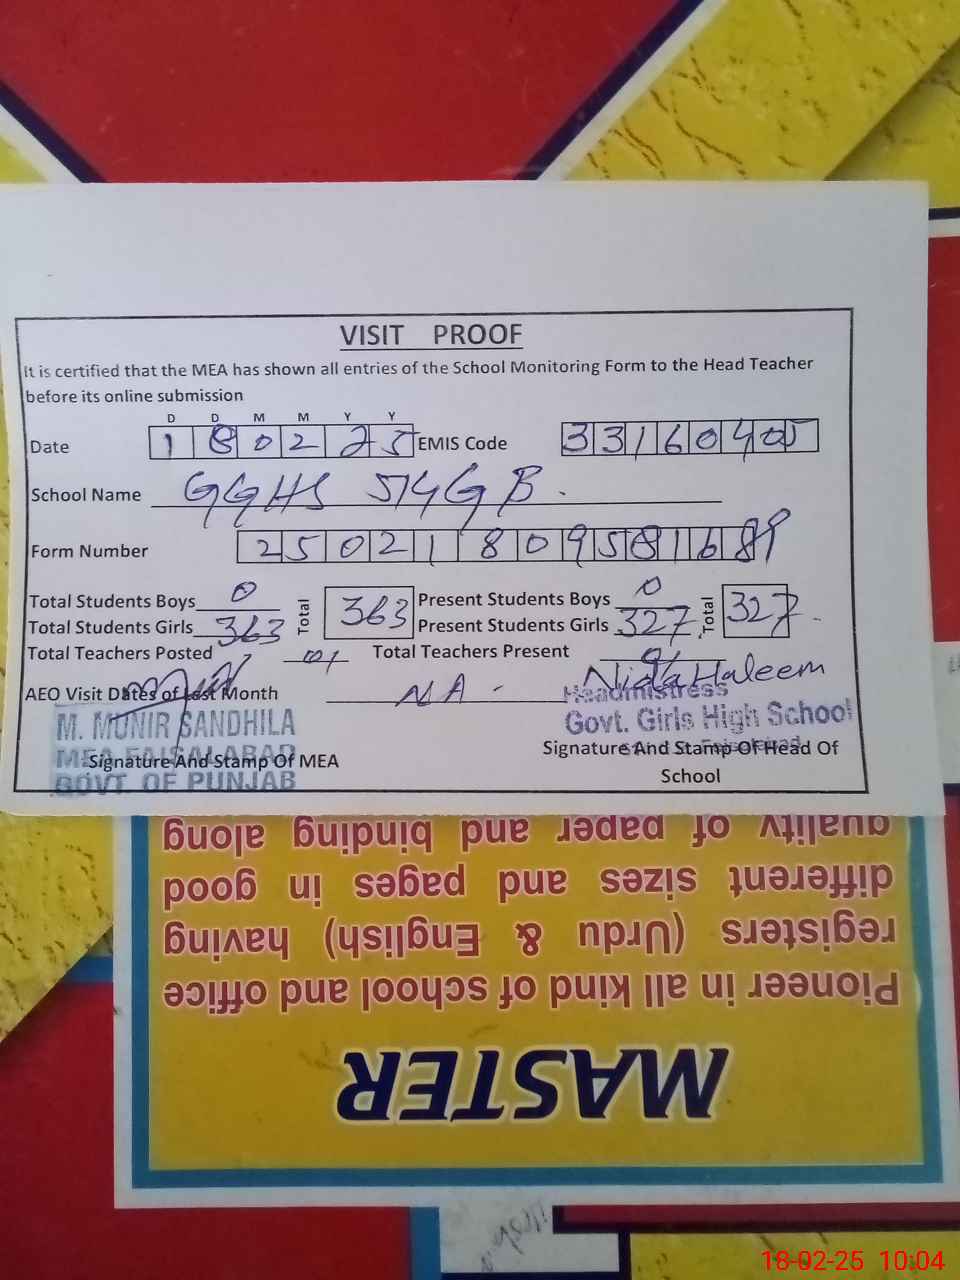 VISIT PROOF
It is certified that the MEA has shown all entries of the School Monitoring Form to the Head Teacher
before its online submission
D D M M Y Y
Date 1 8 0 2 2 5 EMIS Code 3 3 1 6 0 4 0 5
School Name GGHS 514 GB.
Form Number 2 5 0 2 1 8 0 9 5 8 1 6 89
Total Students Boys 0 Total 363 Present Students Boys 0 Total 327
Total Students Girls 363 Present Students Girls 327
Total Teachers Posted Total Teachers Present
AEO Visit Dates of Last Month NA - Nida Haleem
M. MUNIR SANDHILA Headmistress
MEA FAISALABAD Govt. Girls High School
GOVT. OF PUNJAB
Signature And Stamp Of MEA Signature And Stamp Of Head Of
School
MASTER
Pioneer in all kind of school and office
registers (Urdu & English) having
different sizes and pages in good
quality of paper and binding along
18-02-25 10:04